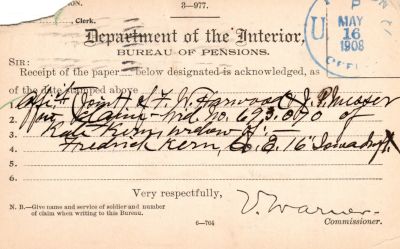 3—977.
SION.
, Clerk.
Department of the Interior,
BUREAU OF PENSIONS.
U
P
MAY
16
1908
OFFI
SIR:
Receipt of the paper below designated is acknowledged, as
of the date stamped above.
1. Affi't (Joint) of F. W. Harwood & J. P. Musser
2. in claim - No. 693.070 of
3. Kate Kern, widow of —
4. Fredrick Kern, Co. E. 16" Iowa
5.
6.
Very respectfully,
V. Warner
Commissioner.
N. B.—Give name and service of soldier and number
of claim when writing to this Bureau.
6—764